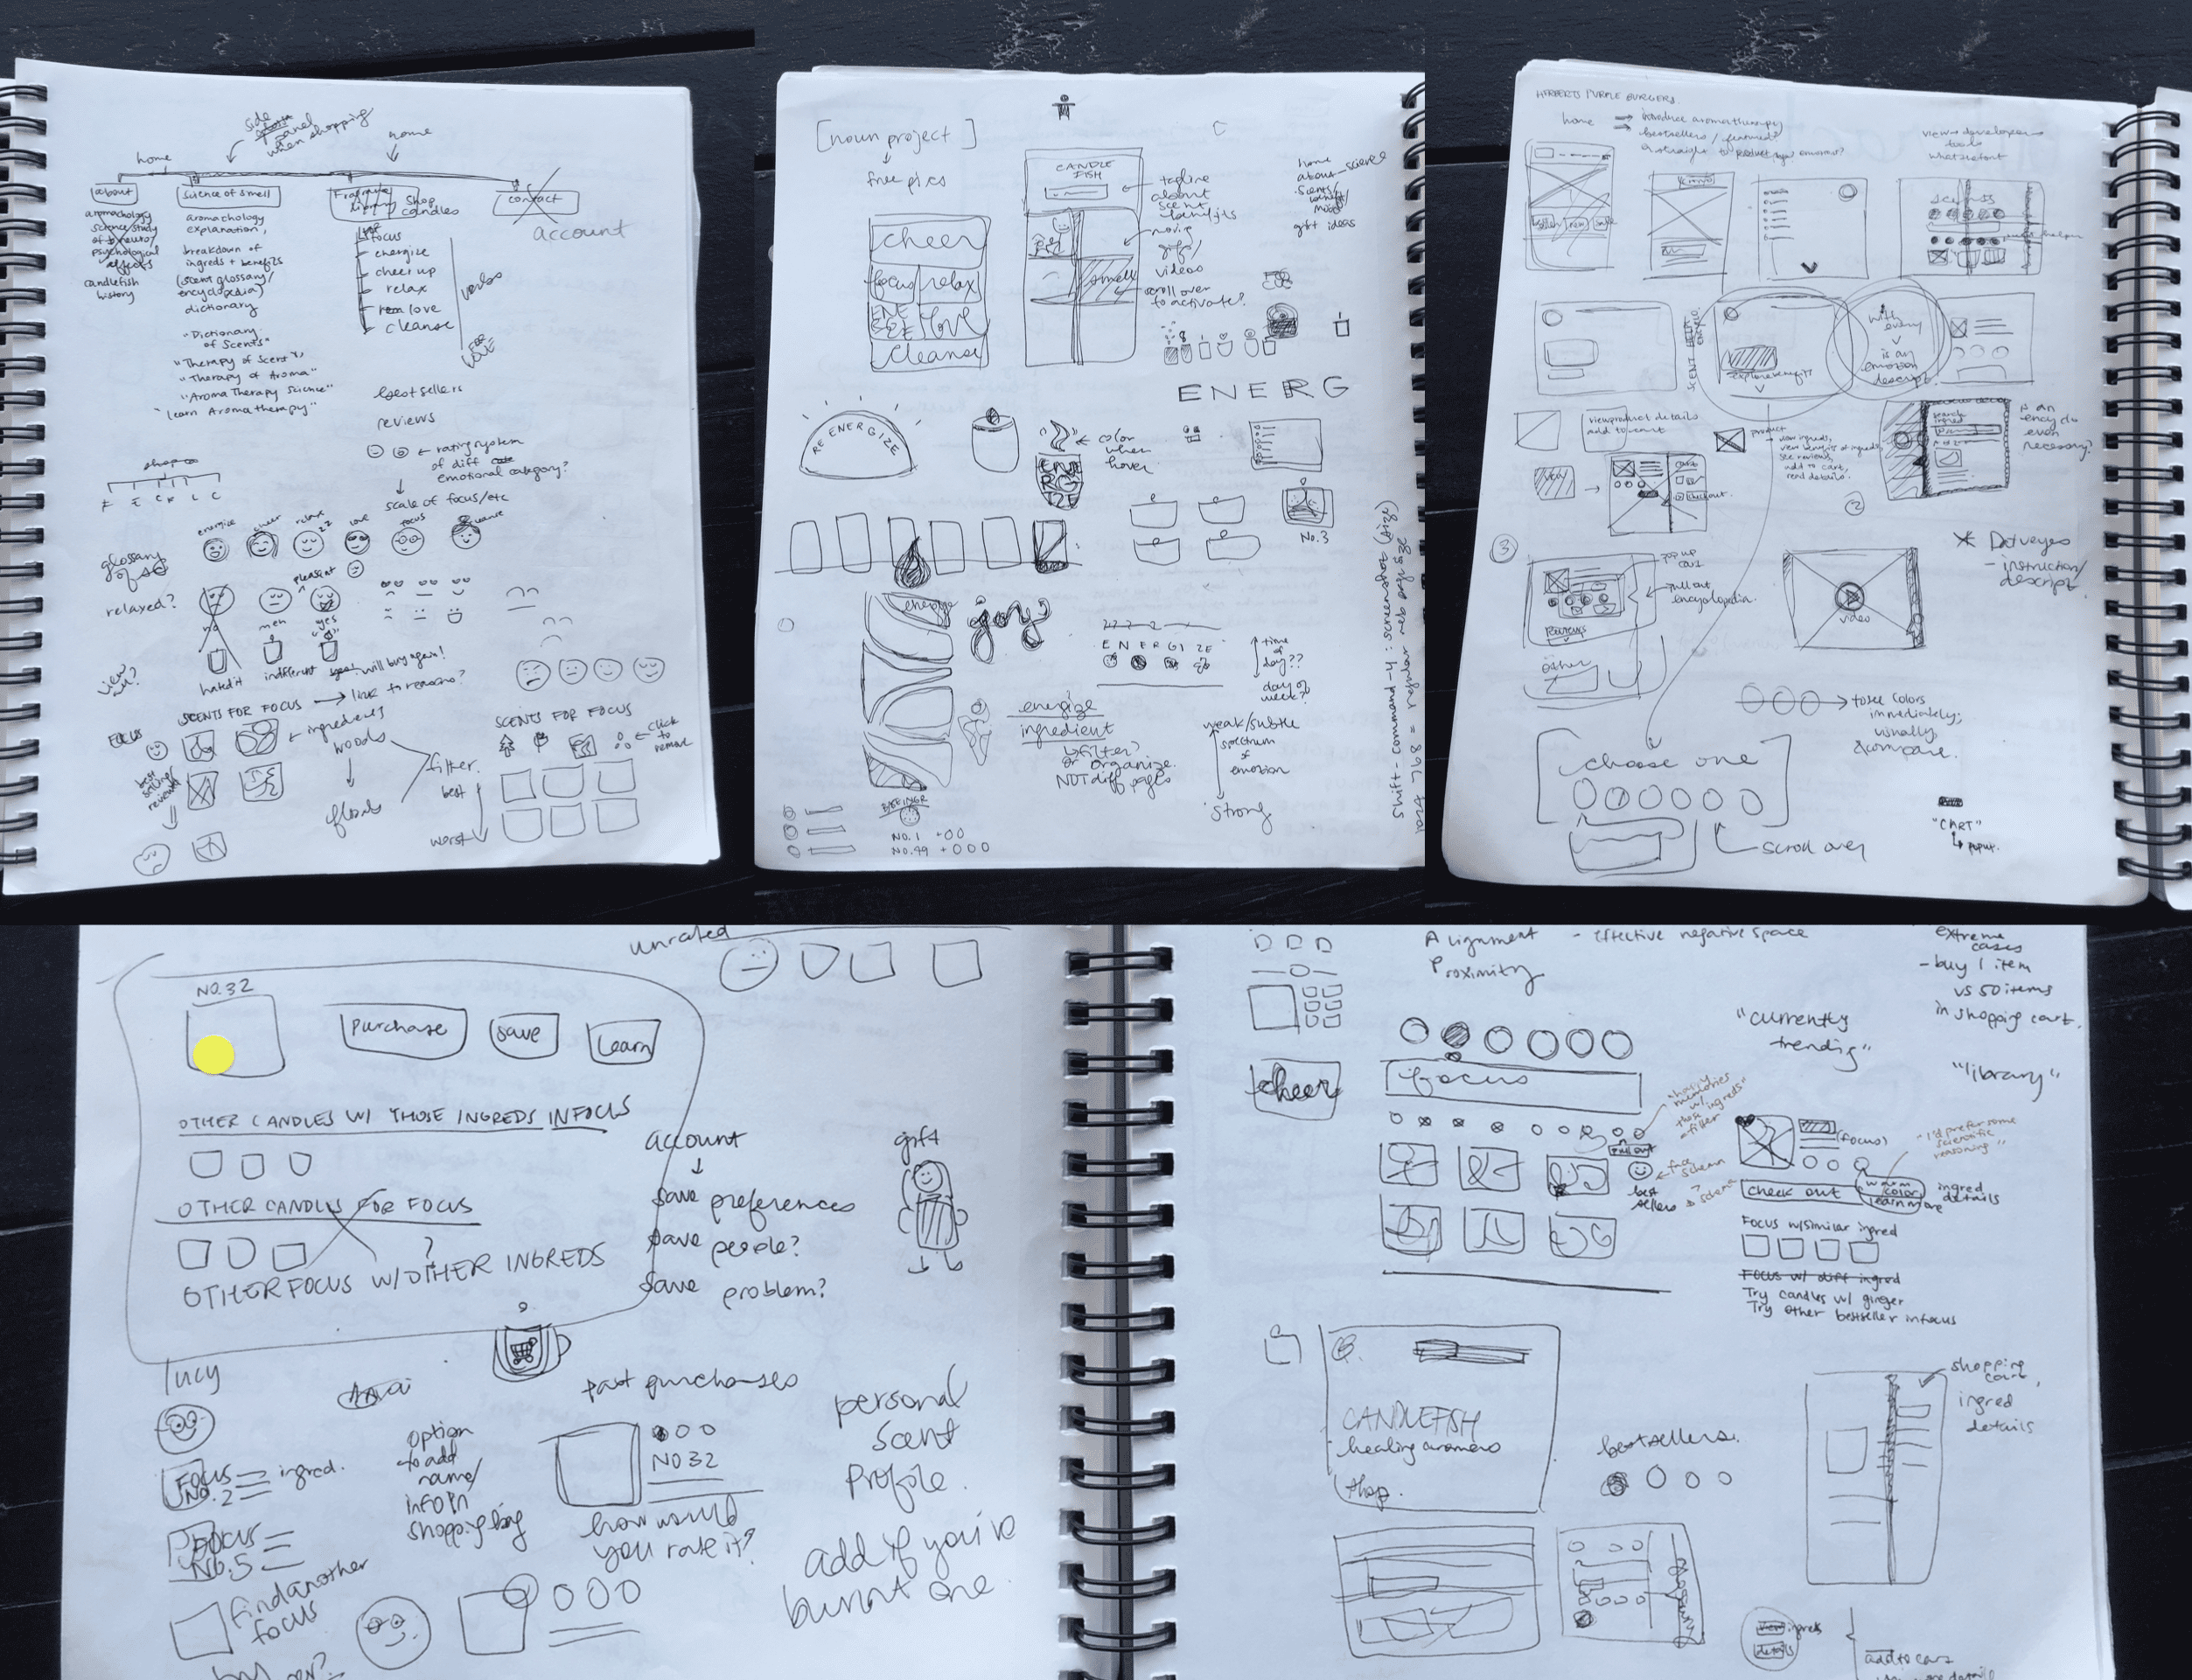 side
panel
when shopping
home
home
about
science of smell
Shop
candles
contact
account
aromachology
science/study
of neuro/
psychological
effects
candlefish
history
aromachology
explanation,
breakdown of
ingreds + benefits
(scent glossary/
encyclopedia)
dictionary
"Dictionary
of Scents"
"Therapy of Scent"
"Therapy of Aroma"
"Aroma Therapy Science"
"Learn Aromatherapy"
focus
energize
cheer up
relax
love
cleanse
verbs
bestsellers
reviews
← rating system
of diff
emotional category?
scale of focus/etc
shop
F E C R L C
energize
cheer
relax
love
focus
glossary
of
relaxed?
pleasant
no
meh
yes
view
all?
hated it
indifferent
great! will buy again!
→ link to reasons?
SCENTS FOR FOCUS
← ingredients
FOCUS
best
selling/
reviews
woods
florals
filter
best
worst
SCENTS FOR FOCUS
click
to
remove
[noun project]
free pics
CANDLE
FISH
tagline
about
scent
benefits
moving
gifs/
videos
scroll over
to activate?
smell
home
about - science
scents/
benefit/
mood
gift ideas
cheer
focus
relax
ENERGIZE
love
cleanse
ENERG
RE ENERGIZE
color
when
hover
ENERGIZE
No.3
energize
joy
ENERGIZE
time
of
day??
day of
week?
energize
ingredient
filter?
or organize
NOT diff pages
weak/subtle
spectrum
of
emotion
strong
No.1 +00
No.99 +000
shift-command-4: screenshot (size)
1024 768 = regular web page size
HERBERTS PURPLE BURGERS
home → introduce aromatherapy
→ bestsellers/featured?
straight to product
view → developer →
tools
whatthefont
explore benefits
with
every
is an
emotion
descript.
is an
encyclo
even
necessary?
view product details
add to cart
product
- view ingreds,
view benefits of ingreds,
see reviews,
add to cart,
read details.
checkout
2
3
pop up
pull out
encyclopedia
other
video
* Dotveyes
- instruction/
descript.
→ three colors
immediately;
visually
compare
[choose one]
scroll over
"CART"
↳ popup.
unrated
NO.32
purchase
save
learn
OTHER CANDLES W/ THOSE INGREDS IN FOCUS
OTHER CANDLES FOR FOCUS
?
OTHER FOCUS W/ OTHER INGREDS
account
save preferences
save people?
save problem?
gift
lucy
FOCUS
No.2
ingred.
FOCUS
No.5
find another
focus
option
to add
name/
info in
shopping bag
past purchases
NO32
how would
you rate it?
personal
scent
profile.
add if you've
burnt one.
Alignment - Effective negative space
Proximity
extreme
cases
- buy 1 item
vs 50 items
in shopping cart.
cheer
focus
"currently
trending"
"library"
memories
w/
those ingreds"
- filter
pull out
face
schema
best
sellers
schema?
(focus)
"I'd prefer some
scientific
reasoning"
check out
color
learn more
ingred
details
Focus w/ similar ingred
Focus w/ diff ingred
Try candles w/ ginger
Try other bestseller in focus
CANDLEFISH
healing aromas
shop.
bestsellers.
shopping
cart,
ingred
details
view ingreds
details
add to cart